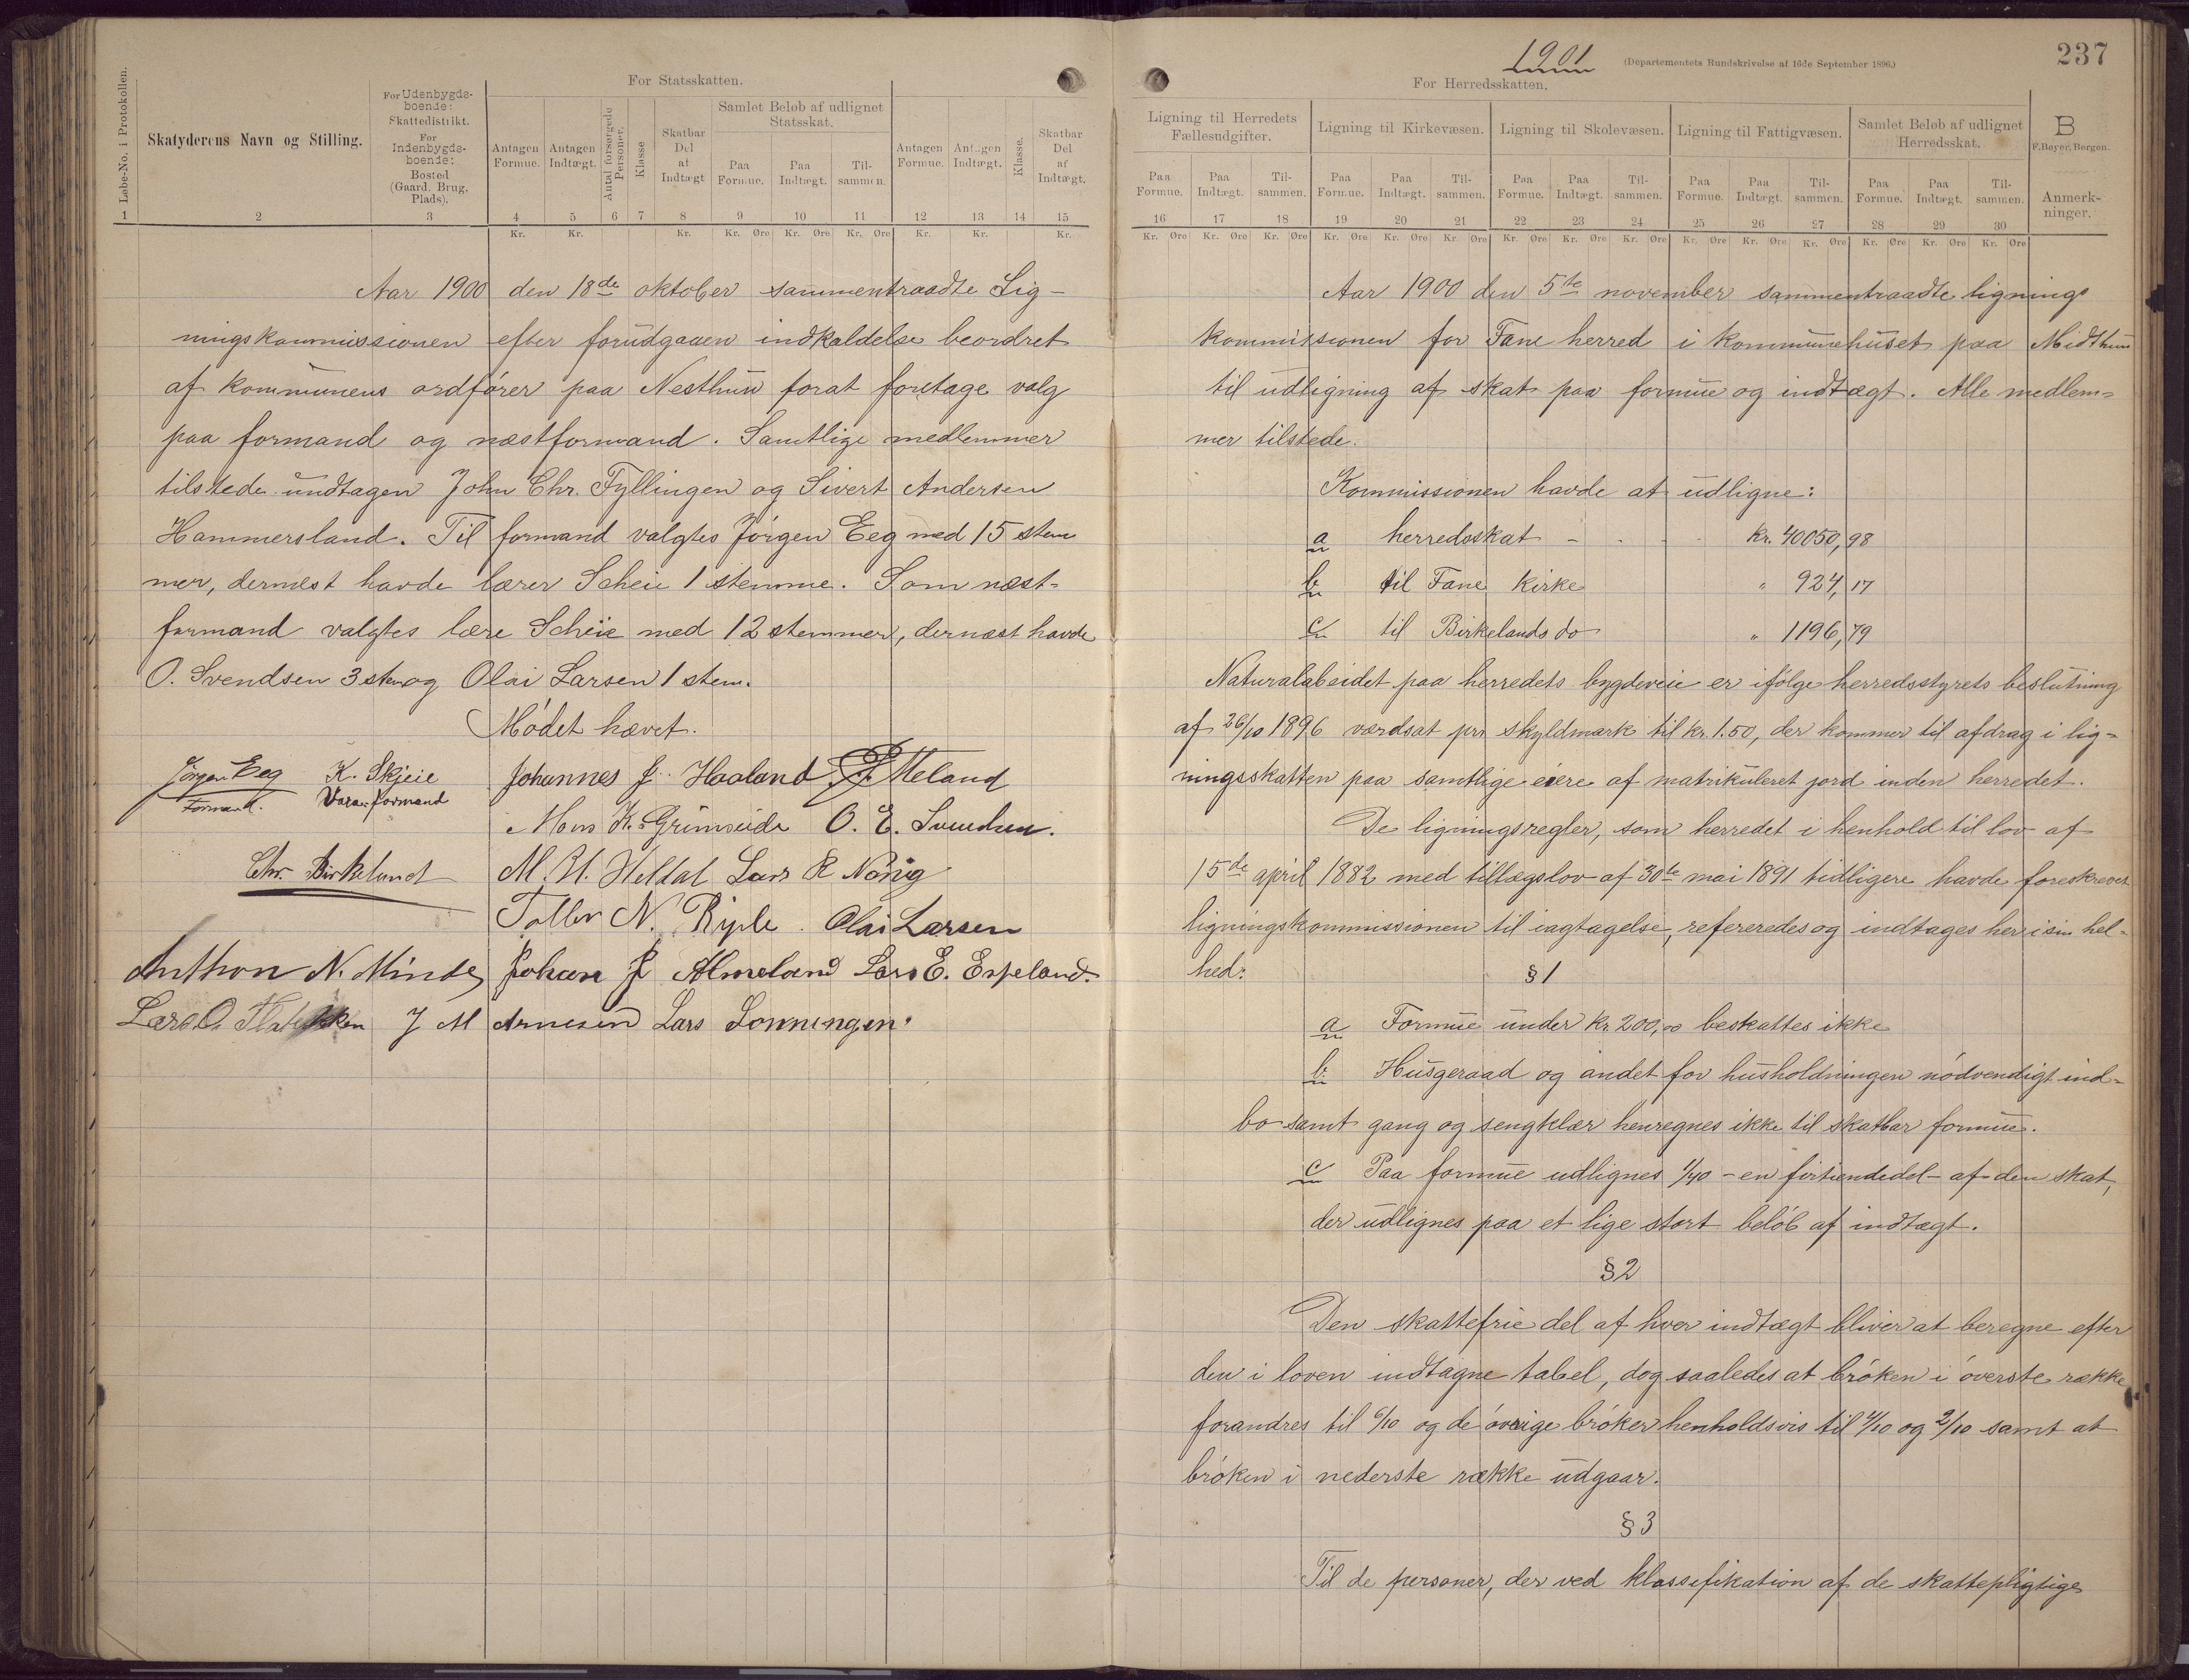 1901
(Departementets Rundskrivelse af 16de September 1896.)
237
Løbe-No. i Protokollen.
Skatyderens Navn og Stilling.
For Udenbygds-
boende:
Skattedistrikt.
For
Indenbygds-
boende:
Bosted
(Gaard, Brug,
Plads).
For Statsskatten.
Antagen Formue.
Antagen Indtægt.
Antal forsørgede Personer.
Klasse
Skatbar Del af Indtægt
Samlet Beløb af udlignet Statsskat.
Paa Formue.
Paa Indtægt.
Tilsammen.
Antagen Formue.
Antagen Indtægt.
Klasse.
Skatbar Del af Indtægt.
1 2 3 4 5 6 7 8 9 10 11 12 13 14 15
Kr. Kr. Kr. Kr. Øre Kr. Øre Kr. Øre Kr. Kr. Kr.
Aar 1900 den 18de oktober sammentraadte Lig-
ningskommissionen efter forudgaaen indkaldelse beordret
af kommunens ordfører paa Nesthun forat foretage valg
paa formand og næstformand. Samtlige medlemmer
tilstede undtagen John Chr. Fyllingen og Sivert Andersen
Hammersland. Til formand valgtes Jørgen Eeg med 15 stem
mer, dernæst havde lærer Scheie 1 stemme. Som næst-
formand valgtes lære Scheie med 12 stemmer, dernæst havde
O. Svendsen 3 stem og Olai Larsen 1 stem.
Mødet hævet.
Jørgen Eeg K. Skjeie Johannes J. Haaland Meland
Formand. Vara-formand
Mons K. Grimseide O. E. Svendsen.
Chr. Birkeland M. H. Heldal Lars R Nøring
N. Riple. Olai Larsen
Anthon N. Minde Johan J Almeland Lars E. Espeland.
Lars O. J M Arnesen Lars Lønningen.
For Herredsskatten.
Ligning til Herredets Fællesudgifter.
Ligning til Kirkevæsen.
Ligning til Skolevæsen.
Ligning til Fattigvæsen.
Samlet Beløb af udlignet Herredsskat.
B
F. Beyer, Bergen.
Paa Formue. Paa Indtægt. Tilsammen. Paa Formue. Paa Indtægt. Tilsammen. Paa Formue. Paa Indtægt. Tilsammen. Paa Formue. Paa Indtægt. Tilsammen. Paa Formue. Paa Indtægt. Tilsammen.
Anmerk-
ninger.
16 17 18 19 20 21 22 23 24 25 26 27 28 29 30
Kr. Øre Kr. Øre Kr. Øre Kr. Øre Kr. Øre Kr. Øre Kr. Øre Kr. Øre Kr. Øre Kr. Øre Kr. Øre Kr. Øre Kr. Øre Kr. Øre Kr. Øre
Aar 1900 den 5te november sammentraadte lignings
kommissionen for Fane herred i kommunehuset paa Midthun
til udligning af skat paa formue og indtægt. Alle medlem=
mer tilstede.
Kommissionen havde at udligne:
a herredsskat - - - kr. 40050,98
b til Fane kirke " 924,17
c til Birkelands do " 1196,79
Naturalabeidet paa herredets bygdeveie er ifølge herredsstyrets beslutning
af 26/10 1896 værdsat pr. skyldmark til kr. 1.50, der kommer til afdrag i lig=
ningsskatten paa samtlige eiere af matrikuleret jord inden herredet.
De ligningsregler, som herredet i henhold til lov af
15de april 1882 med tillægslov af 30te mai 1891 tidligere havde foreskrevet
ligningskommissionen til iagtagelse, refereredes og indtages her i sin hel=
hed:
§ 1
a Formue under kr 200,00 beskattes ikke
b Husgeraad og andet for husholdningen nødvendigt ind=
bo samt gang og sengklær henregnes ikke til skatbar formue.
c Paa formue udlignes 1/40 - en firtiendedel - af den skat,
der udlignes paa et lige stort beløb af indtægt.
§ 2
Den skattefrie del af hver indtægt bliver at beregne efter
den i loven indtagne tabel, dog saaledes at brøken i øverste række
forandres til 6/10 og de øvrige brøker henholdsvis til 4/10 og 2/10 samt at
brøken i nederste række udgaar.
§ 3
Til de personer, der ved klassifikation af de skattepligtige